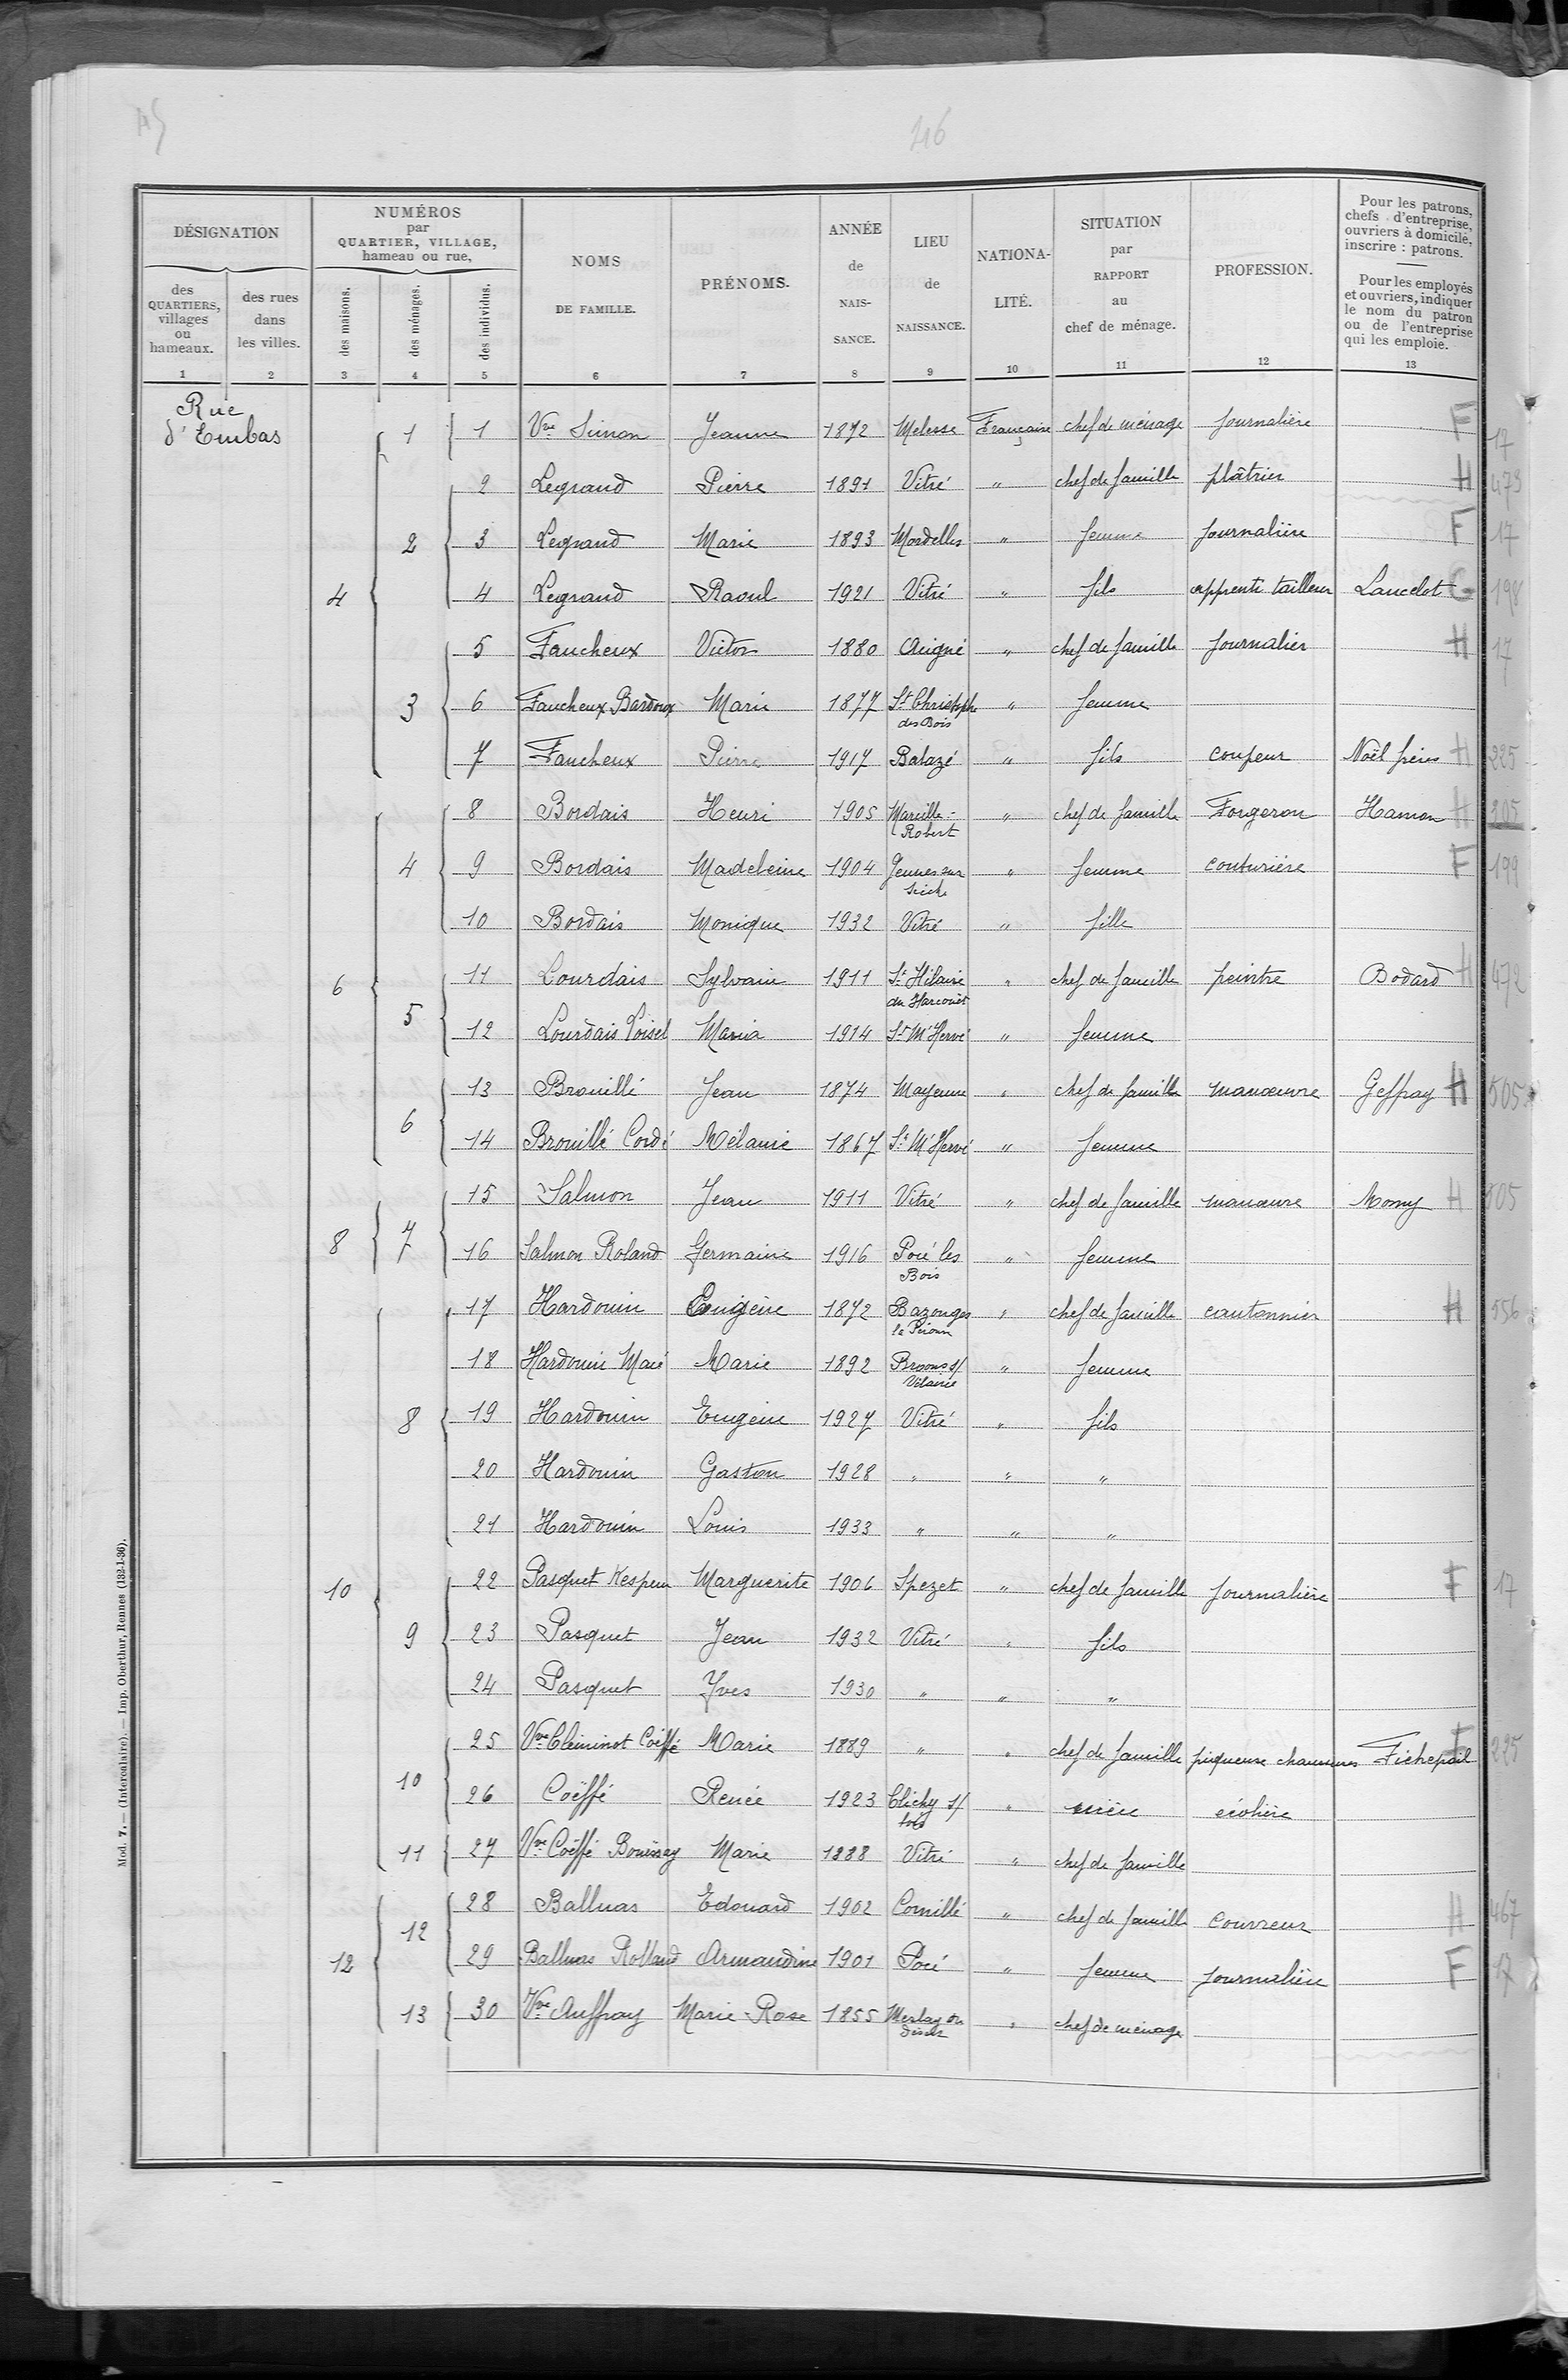 46
DÉSIGNATION
NUMÉROS
par
QUARTIER, VILLAGE,
hameau ou rue,
des
QUARTIERS,
villages
ou
hameaux.
des rues
dans
les villes.
des maisons.
des ménages.
des individus.
NOMS
DE FAMILLE.
PRÉNOMS.
ANNÉE
de
NAIS-
SANCE.
LIEU
de
NAISSANCE.
NATIONA-
LITÉ.
SITUATION
par
RAPPORT
au
chef de ménage.
PROFESSION.
Pour les patrons,
chefs d'entreprise,
ouvriers à domicile,
inscrire : patrons.
Pour les employés
et ouvriers, indiquer
le nom du patron
ou de l'entreprise
qui les emploie.
1 2 3 4 5 6 7 8 9 10 11 12 13
Rue
d'Embas
1 1 Vve Simon Jeanne 1872 Melesse Française chef de ménage journalière F 17
2 Legrand Pierre 1891 Vitré " chef de famille plâtrier H 473
2 3 Legrand Marie 1893 Mordelles " femme journalière F 17
4 4 Legrand Raoul 1921 Vitré " fils apprenti tailleur Lancelot G 198
5 Faucheux Victor 1880 " chef de famille journalier H 17
3 6 Faucheux Bardoux Marie 1877 St Christophe des Bois " femme
7 Faucheux Pierre 1917 Balazé " fils coupeur Noël frères H 225
8 Bordais Henri 1905 Marcillé-Robert " chef de famille Forgeron Hamon H 205
4 9 Bordais Madeleine 1904 Gennes sur Seiche " femme couturière F 199
10 Bordais Monique 1932 Vitré " fille
6 11 Lourdais Sylvain 1911 St Hilaire du Harcouët " chef de famille peintre Bodard H 472
5 12 Lourdais Loisel Maria 1914 St M'Hervé " femme
13 Brouillé Jean 1874 Mayenne " chef de famille manoeuvre Geffray H 505
6 14 Brouillé Cordé Mélanie 1867 St M'Hervé " femme
15 Salmon Jean 1911 Vitré " chef de famille manoeuvre H 505
8 7 16 Salmon Roland Germaine 1916 Pocé les Bois " femme
17 Hardouin Eugène 1872 Bazouges la Pérouse " chef de famille cantonnier H 556
18 Hardouin Marie 1892 Broons s/ Vilaine " femme
8 19 Hardouin Eugène 1927 Vitré " fils
20 Hardouin Gaston 1928 " " "
21 Hardouin Louis 1933 " " "
10 22 Pasquet Marguerite 1906 Spezet " chef de famille journalière F 17
9 23 Pasquet Jean 1932 Vitré " fils
24 Pasquet Yves 1930 " " "
25 Vve Coëffé Marie 1889 " " chef de famille piqueuse chaussures Fichepoil F 225
10 26 Coëffé Renée 1923 Clichy s/ " nièce écolière
11 27 Vve Coëffé Marie 1888 Vitré " chef de famille
28 Balluas Edouard 1902 Cornillé " chef de famille couvreur H 467
12 12 29 Balluas Rolland Armandine 1901 Pocé " femme journalière F 17
13 30 Vve Auffray Marie Rose 1855 " chef de ménage
Mod. 7. — (Intercalaire). — Imp. Oberthur, Rennes (132-1-36).